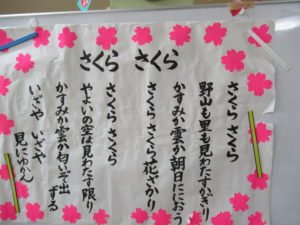 さくら さくら
さくら さくら
野山も里も見わたすかぎり
かすみか雲か朝日ににおう
さくら さくら花ざかり
さくら さくら
やよいの空は見わたす限り
かすみか雲か匂いぞ出ずる
いざや いざや
見にゆかん